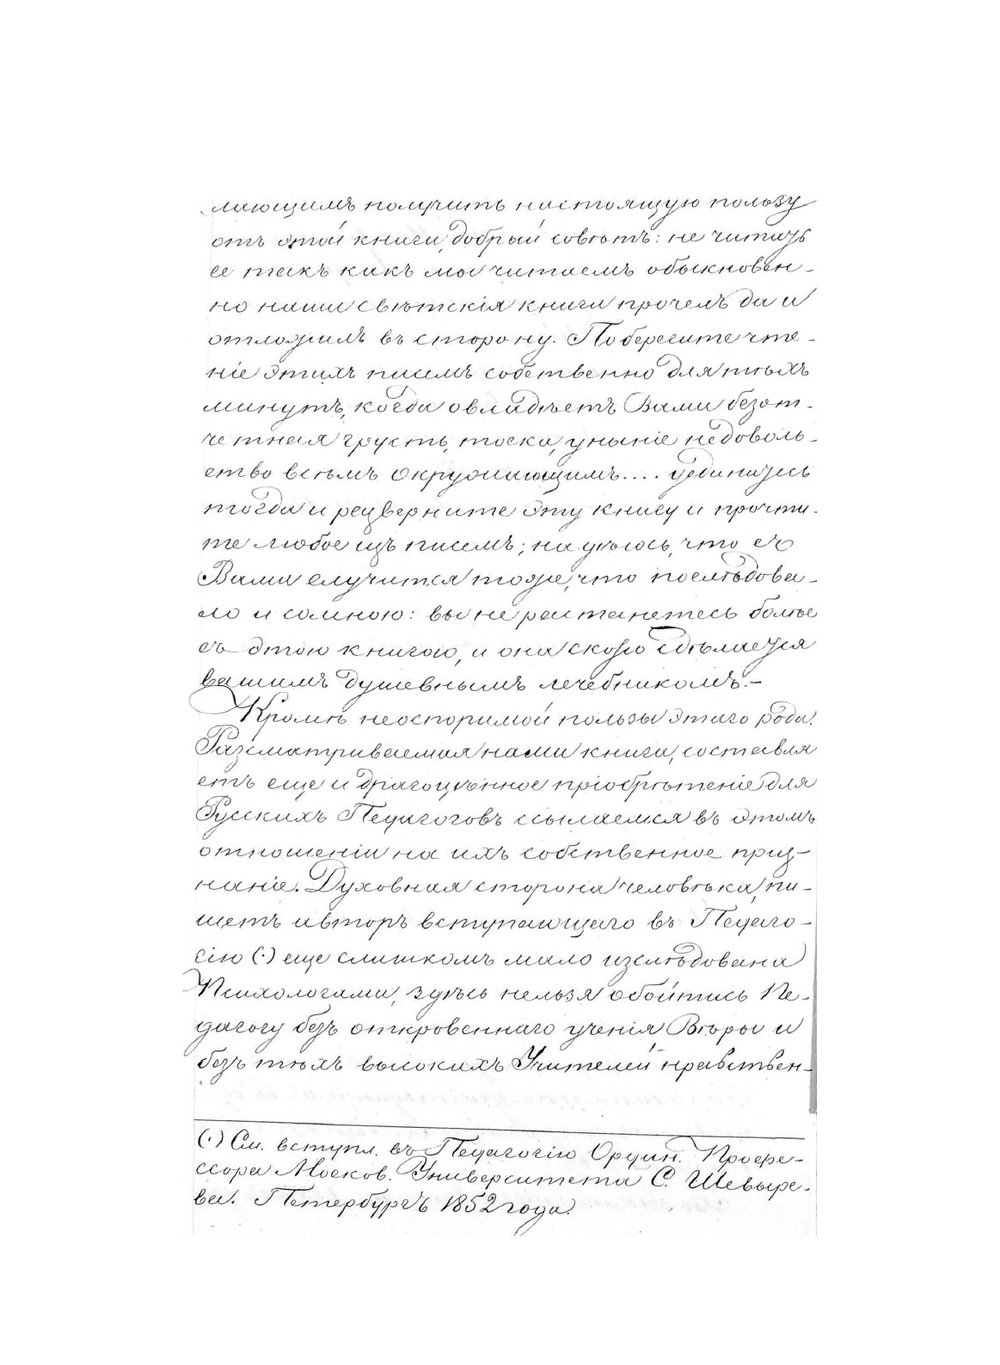 лающимъ получить настоящую пользу
отъ этой книги, добрый совѣтъ: не читать
ее такъ какъ мы читаемъ обыкновен-
но наши свѣтскія книги прочелъ да и
отложилъ въ сторону. Поберегите чте-
ніе этихъ писемъ собственно для тѣхъ
минутъ, когда овладѣетъ Вами безот-
четная грусть, тоска, уныніе недоволь-
ство всѣмъ окружающимъ.... уединитесь
тогда и разверните эту книгу и прочти-
те любое изъ писемъ; надѣюсь, что съ
Вами случится тоже, что послѣдова-
ло и со мною: вы не разстанетесь болѣе
съ этою книгою, и она скоро сдѣлается
вашимъ душевнымъ лечебникомъ.—
Кромѣ неоспоримой пользы этаго рода.
Разсматриваемая нами книга, составля
етъ еще и драгоцѣнное пріобрѣтеніе для
Русскихъ Педагоговъ ссылаемся въ этомъ
отношеніи на ихъ собственное приз-
наніе. Духовная сторона человѣка, пи-
шетъ авторъ вступающаго въ Педаго-
гію (·) еще слишкомъ мало изслѣдована
Психологами, здѣсь нельзя обойтись Пе-
дагогу безъ откровеннаго ученія Вѣры и
безъ тѣхъ высокихъ Учителей нравствен-
(·) См. вступл. въ Педагогію Ордин. Профе-
ссора Москов. Университета С. Шевыре-
ва. Петербургъ 1852 года.